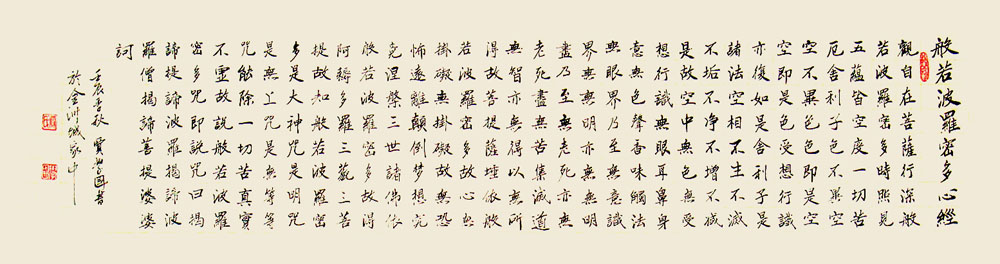 般若波羅密多心經
觀自在菩薩行深般
若波羅密多時照見
五蘊皆空度一切苦
厄舍利子色不異空
空不異色色即是空
空即是色受想行識
亦復如是舍利子是
諸法空相不生不滅
不垢不净不增不减
是故空中無色無受
想行識無眼耳鼻身
意無色聲香味觸法
無眼界乃至無意識
界無無明亦無無明
盡乃至無老死亦無
老死盡無苦集滅道
無智亦無得以無所
得故菩提薩埵依般
若波羅密多故心無
掛礙無掛礙故無恐
怖遠離顛倒梦想究
竟涅槃三世諸佛依
般若波羅密多故得
阿耨多羅三藐三菩
提故知般若波羅密
多是大神咒是明咒
是無上咒是無等等
咒能除一切苦真實
不虛故說般若波羅
密多咒即說咒曰揭
諦揭諦波羅揭諦波
羅僧揭諦菩提婆婆
訶
壬辰春秋 書
於金洲城家中